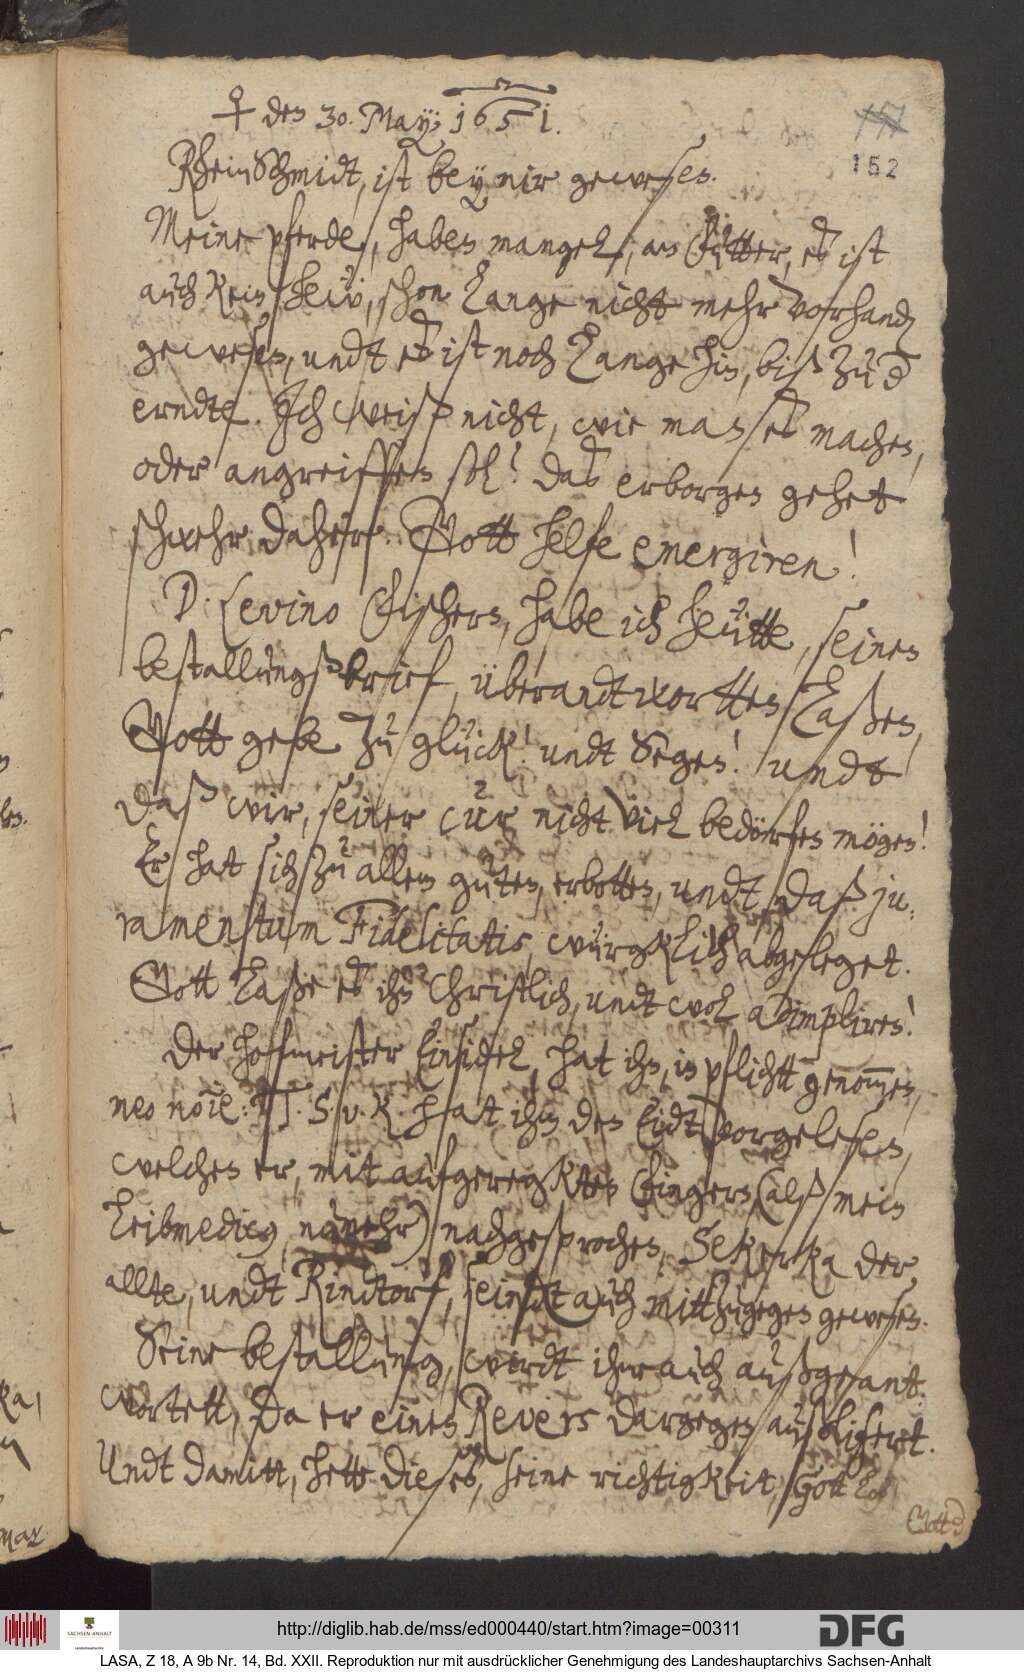 ♀ den 30. May: 1651.
152
Rhein Schmidt, ist bey mir gewesen.
Meine pferde, haben mangel, an Futter, es ist
auch kein Heẅ, schon lange nicht mehr vorhanden
gewesen, undt es ist noch lange hin, biß zu der
erndte. Ich weiß nicht, wie man es machen,
oder angreiffen sol? das erborgen gehet
schwehr daher. Gott helfe emergiren!
D. Levino Fischern, habe ich heütte, seinen
bestallungßbrief, überandtwortten laßen,
Gott gebe zu glück! undt Segen! undt
daß wir, seiner cur nicht viel bedörfen mögen!
Er hat sich zu allem guten, erbotten, undt daß ju-
ramentum Fidelitatis, würgklich abgeleget.
Gott laße es ihn Christlich, undt wol adimpliren!
Der hoffmeister Einsidel, hat ihn, in pflicht genom̄en,
meo no͞ie: T. S. v. K. hat ihm den Eidt vorgelesen,
welchen er, mit aufgeregkten Fingern (alß mein
Leibmedicus nunmehr) nachgesprochen, Sekerka der
allte, undt Rindtorf, seindt auch mitt zugegen gewesen.
Seine bestallung, wirdt ihm auch außgeant-
wortett, da er einen Revers dargegen außlifert.
Undt damitt, hette dieses, seine richtigkeit, Gott
http://diglib.hab.de/mss/ed000440/start.htm?image=00311
DFG
SACHSEN-ANHALT
LASA, Z 18, A 9b Nr. 14, Bd. XXII. Reproduktion nur mit ausdrücklicher Genehmigung des Landeshauptarchivs Sachsen-Anhalt